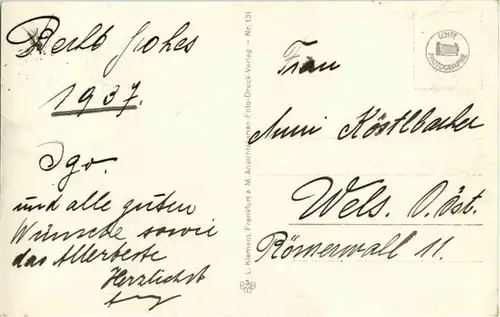 Recht frohes
1937.
und alle guten
Wünsche sowie
das Allerbeste
Herzlichst
L. Klement, Frankfurt a. M. Ansichtskarten-Foto-Druck-Verlag - Nr. 131
ECHTE
PHOTOGRAPHIE
Frau
Anni Köstlbacher
Wels. O. Öst.
Römerwall 11.